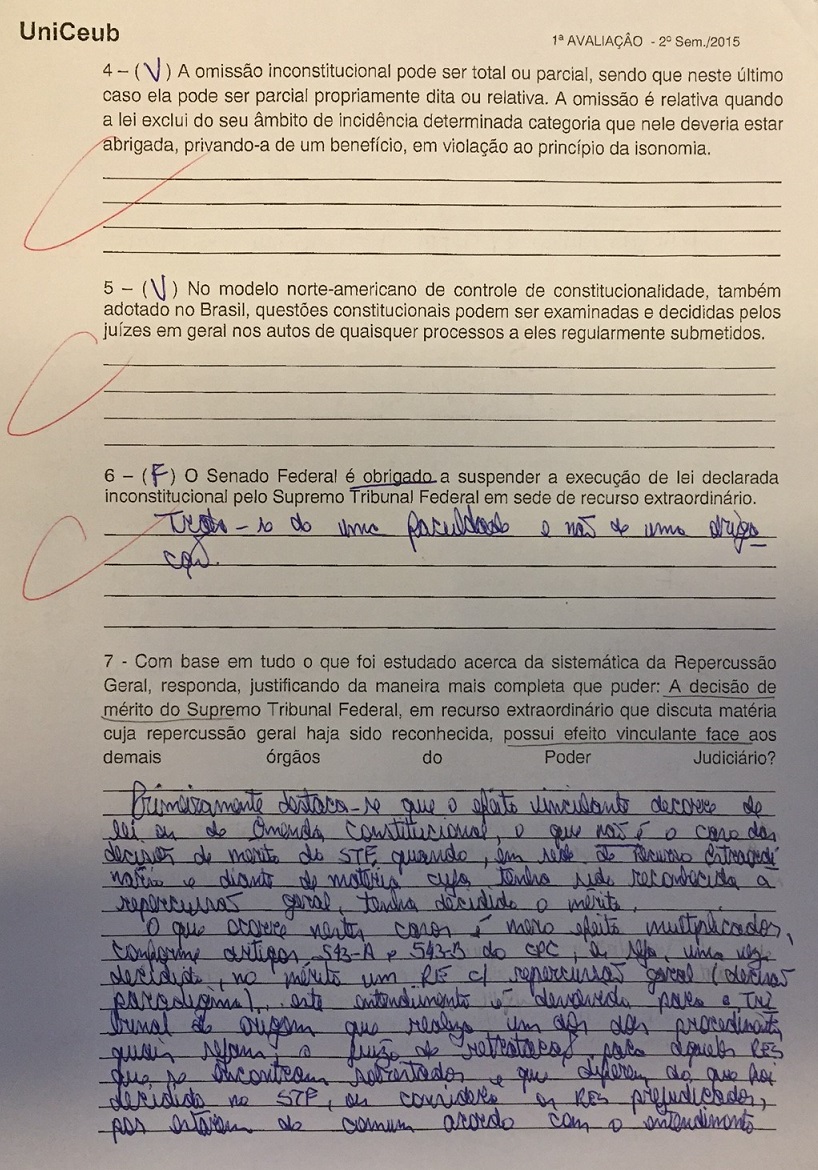 UniCeub
1ª AVALIAÇÂO - 2º Sem./2015
4 – (V) A omissão inconstitucional pode ser total ou parcial, sendo que neste último
caso ela pode ser parcial propriamente dita ou relativa. A omissão é relativa quando
a lei exclui do seu âmbito de incidência determinada categoria que nele deveria estar
abrigada, privando-a de um benefício, em violação ao princípio da isonomia.
5 – (V) No modelo norte-americano de controle de constitucionalidade, também
adotado no Brasil, questões constitucionais podem ser examinadas e decididas pelos
juízes em geral nos autos de quaisquer processos a eles regularmente submetidos.
6 – (F) O Senado Federal é obrigado a suspender a execução de lei declarada
inconstitucional pelo Supremo Tribunal Federal em sede de recurso extraordinário.
Trata-se de uma faculdade e não de uma obriga
ção.
7 - Com base em tudo o que foi estudado acerca da sistemática da Repercussão
Geral, responda, justificando da maneira mais completa que puder: A decisão de
mérito do Supremo Tribunal Federal, em recurso extraordinário que discuta matéria
cuja repercussão geral haja sido reconhecida, possui efeito vinculante face aos
demais órgãos do Poder Judiciário?
Primeiramente destaca-se que o efeito vinculante decorre de
lei ou de Emenda Constitucional, o que não é o caso das
decisões de mérito do STF, quando, em sede de Recurso Extraordi
nário e diante de matéria cuja tenha sido reconhecida a
repercussão geral, tenha decidido o mérito.
O que ocorre nestes casos é mero efeito multiplicador,
conforme artigos 543-A e 543-B do CPC, ou seja, uma vez
decidido, no mérito um RE c/ repercussão geral (decisão
paradigma), este entendimento é devolvido para o Tri
bunal de origem que realiza um dos dois procedimentos
quais sejam: o juízo de retratação, para aqueles RES
que se encontram sobrestados e que diferem do que foi
decidido no STF, ou considera os RES prejudicados,
por estarem de comum acordo com o entendimento